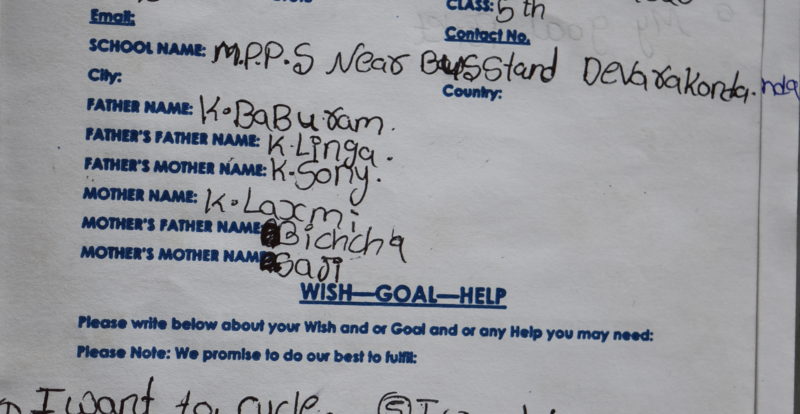 CLASS: 5th
Email:
Contact No.
SCHOOL NAME: M.P.P.S Near BusStand Devarakonda.
City:
Country:
FATHER NAME: K. BaBu ram.
FATHER'S FATHER NAME: K. Linga.
FATHER'S MOTHER NAME: K. Sony.
MOTHER NAME: K. Laxmi
MOTHER'S FATHER NAME Bichcha
MOTHER'S MOTHER NAME Saji
WISH—GOAL—HELP
Please write below about your Wish and or Goal and or any Help you may need:
Please Note: We promise to do our best to fulfil:
I want to cycle.